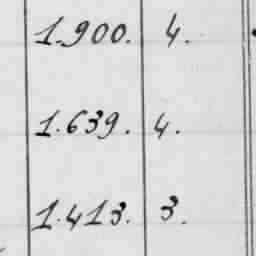 1.900. 4.
1.639. 4.
1.413. 3.